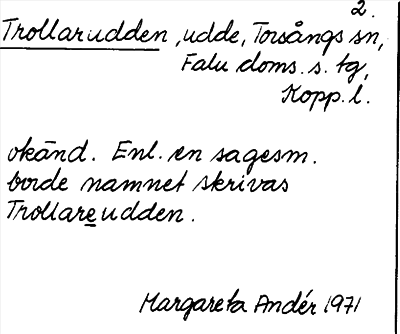 2.
Trollarudden, udde, Torsångs sn,
Falu doms. s. tg,
Kopp. l.
okänd. Enl. en sagesm.
borde namnet skrivas
Trollareudden.
Margareta Andér 1971